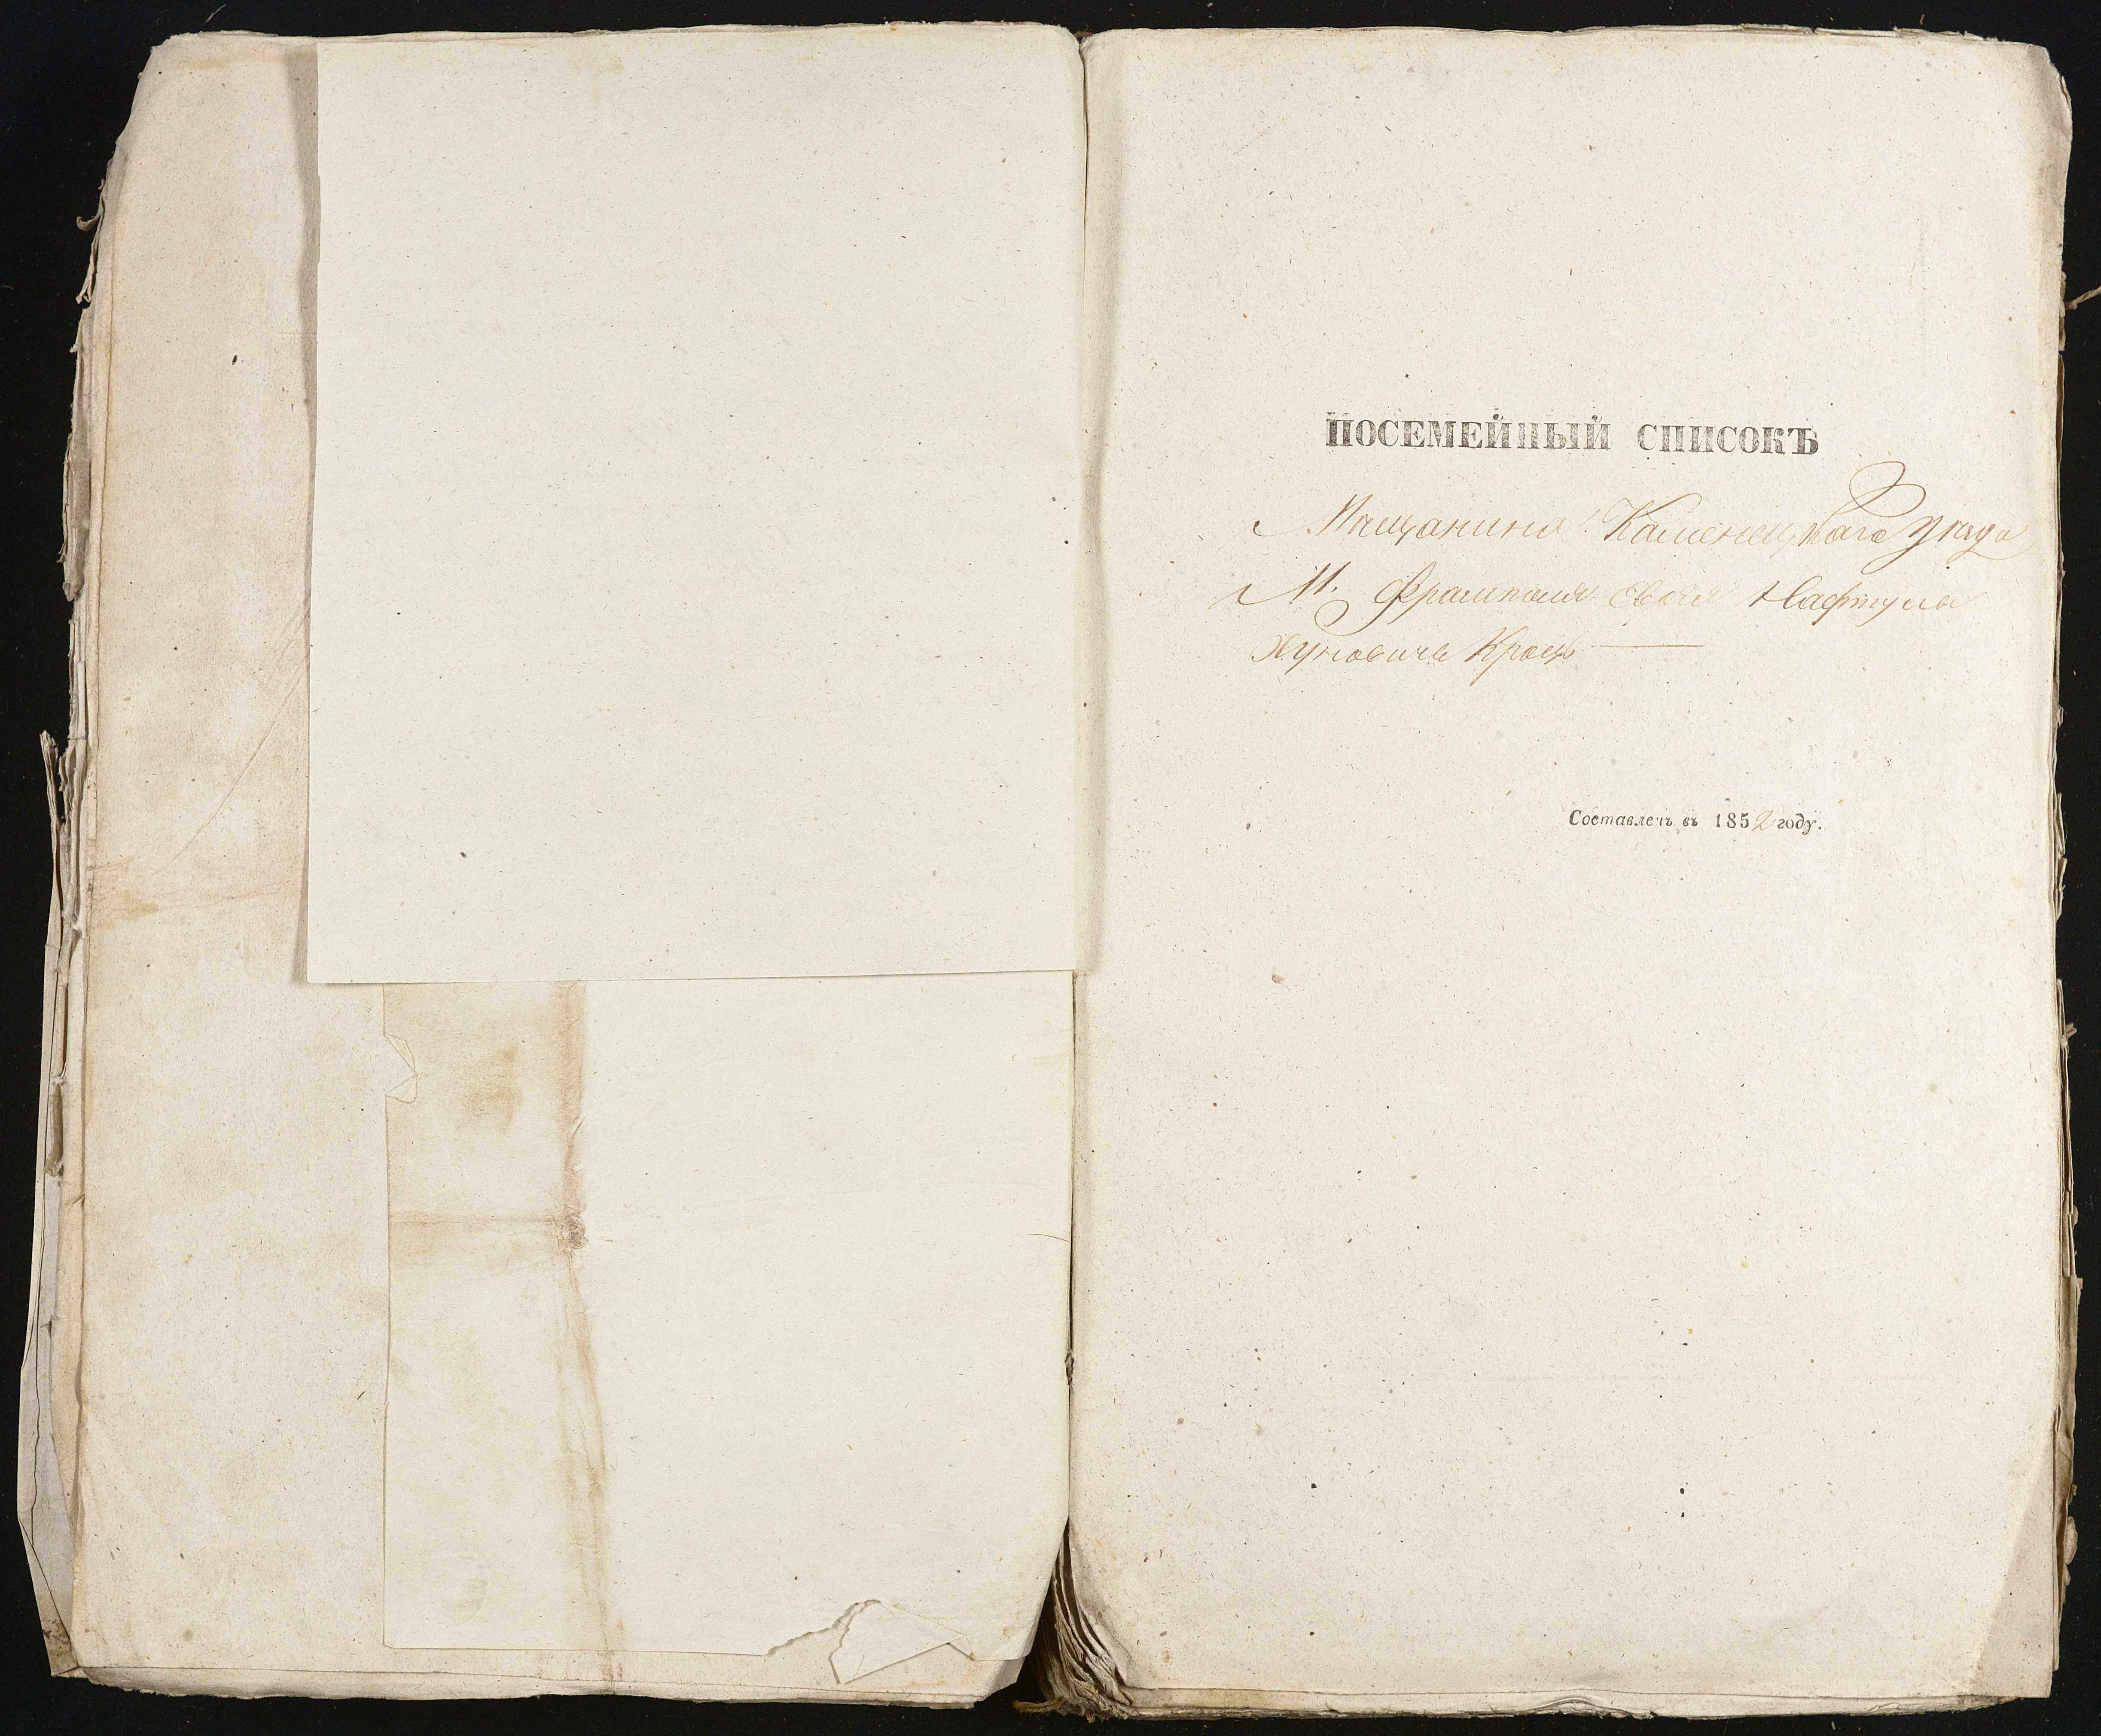 ПОСЕМЕЙНЫЙ СПИСОКЪ
Мѣщанина Каменецкаго Уѣзда
М. Фрамполя Еврея Нафтула
Хуновича Крацъ
Составленъ въ 1852 году.